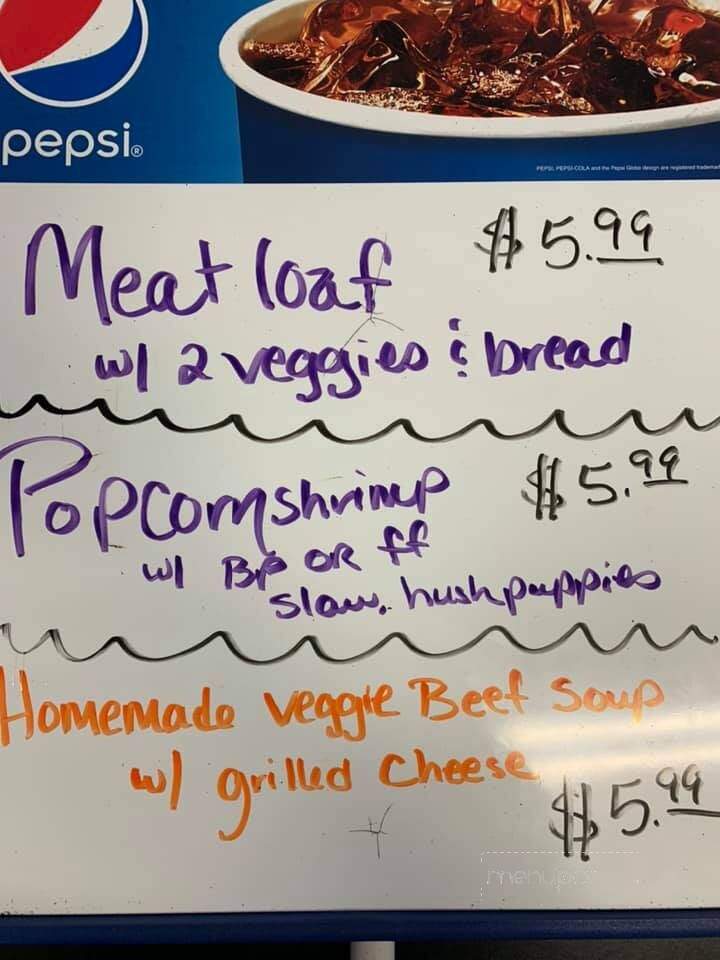 pepsi®
PEPSI, PEPSI-COLA and the Pepsi Globe design are registered trademar
Meat loaf $5.99
w/ 2 veggies & bread
Popcorn shrimp $5.99
w/ BP OR ff
slaw, hushpuppies
Homemade veggie Beef Soup
w/ grilled cheese
$5.99